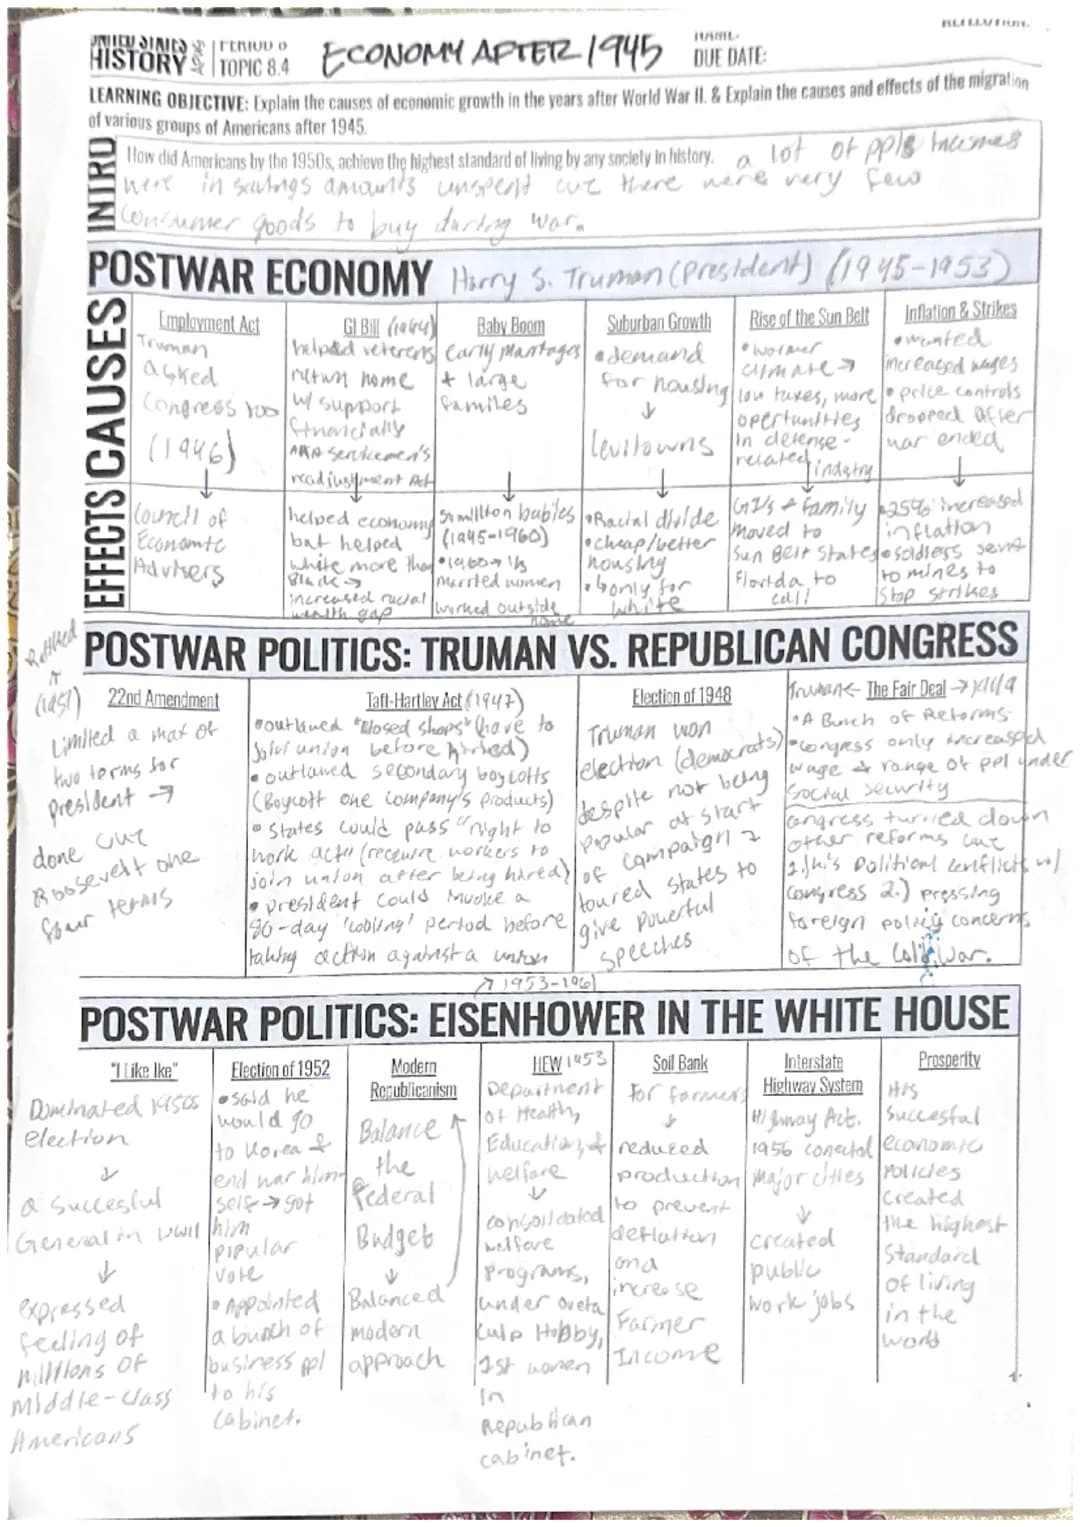 UNITED STATES HISTORY
PERIOD 8
TOPIC 8.4
ECONOMY AFTER 1945
NAME:
DUE DATE:
LEARNING OBJECTIVE: Explain the causes of economic growth in the years after World War II. & Explain the causes and effects of the migration
of various groups of Americans after 1945.
INTRO
How did Americans by the 1950s, achieve the highest standard of living by any society in history. a lot of ppls incomes
were in savings amounts unspent cuz there were very few
consumer goods to buy during war.
POSTWAR ECONOMY Harry S. Truman (President) (1945-1953)
CAUSES
Employment Act
Truman
asked
Congress too
(1946)
GI Bill (1944)
helped veterens
return home
w/ support
financially
AKA servicemen's
readjustment Act
Baby Boom
early marriages
+ large
familes
Suburban Growth
• demand
for housing
↓
levittowns
Rise of the Sun Belt
• warmer
climate →
low taxes, more
opertunities
in defense-
related indstry
Inflation & Strikes
• wanted
increased wages
• price controls
dropped after
war ended
EFFECTS
Council of
Economic
Advisers
helped economy
but helped
white more than
Black →
increased racial
wealth gap
50 million babies
(1945-1960)
• 1960 → 1/3
married women
worked outside
home
• Racial divide
• cheap/better
housing
• only for
white
GI's & family
moved to
Sun Belt states
Florida to
cali
• 25% increased
inflation
• soldiess sent
to mines to
stop strikes
POSTWAR POLITICS: TRUMAN VS. REPUBLICAN CONGRESS
Ratified
it
(1951)
22nd Amendment
Limited a max of
two terms for
president →
done cuz
Roosevelt one
four terms
Taft-Hartley Act (1947)
• outlawed "closed shops" (have to
join union before hired)
• outlawed secondary boycotts
(Boycott one company's products)
• States could pass "right to
work acts" (require workers to
join union after being hired)
• president could invoke a
80-day 'cooling' period before
taking action against a union
Election of 1948
Truman won
election (democrats)
despite not being
popular at start
of campaign →
toured states to
give powerful
speeches
Truman ← The Fair Deal → 1949
• A Bunch of Reforms
• congress only increased
wage & range of ppl under
social security
congress turned down
other reforms cuz
1.) h.'s political conflicts w/
congress 2.) pressing
foreign policy concerns
of the Cold War.
↗ 1953-1961
POSTWAR POLITICS: EISENHOWER IN THE WHITE HOUSE
"I Like Ike"
Dominated 1950s
election
↓
a succesful
General in WWII
↓
expressed
feeling of
millions of
middle-class
Americans
Election of 1952
• said he
would go
to Korea &
end war him-
self → got
him
popular
vote
• Appointed
a bunch of
business ppl
to his
cabinet.
Modern
Republicanism
Balance
the
Federal
Budget
↓
Balanced
modern
approach
HEW 1953
Department
of Health,
Education, &
welfare
↓
consolidated
welfare
programs,
under oveta
Culp Hobby,
1st women
in
Republican
cabinet.
Soil Bank
for farmers
↓
reduced
production
to prevent
deflation
and
increase
Farmer
Income
Interstate
Highway System
Higway Act.
1956 conected
major cities
↓
created
public
work jobs
Prosperity
His
succesful
economic
policies
created
the highest
standard
of living
in the
world